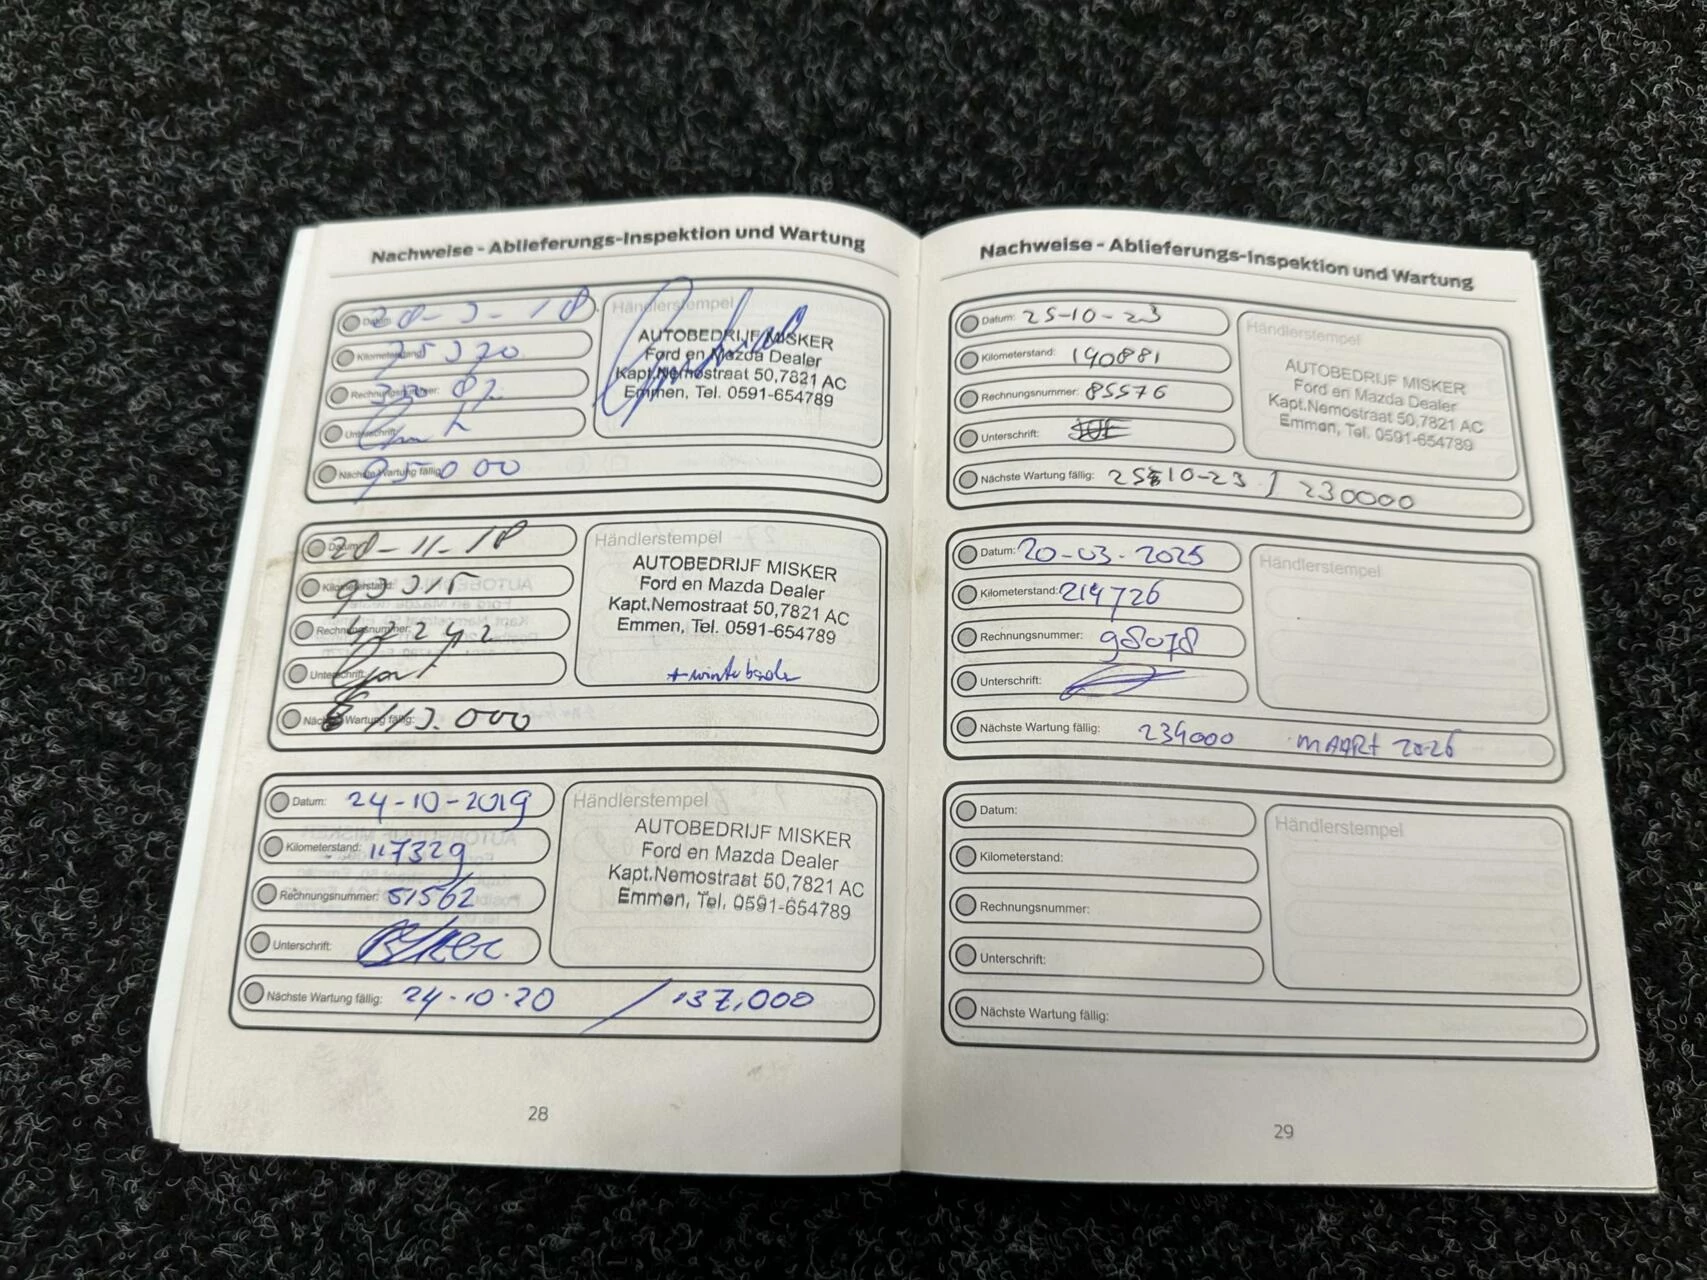 Nachweise - Ablieferungs-Inspektion und Wartung
Datum: 28-3-18
Kilometerstand:
Rechnungsnummer:
Unterschrift:
Nächste Wartung fällig: 95000
Händlerstempel
AUTOBEDRIJF MISKER
Ford en Mazda Dealer
Kapt.Nemostraat 50,7821 AC
Emmen, Tel. 0591-654789
Datum: 28-11-18
Kilometerstand:
Rechnungsnummer:
Unterschrift:
Nächste Wartung fällig: 113.000
Händlerstempel
AUTOBEDRIJF MISKER
Ford en Mazda Dealer
Kapt.Nemostraat 50,7821 AC
Emmen, Tel. 0591-654789
Datum: 24-10-2019
Kilometerstand: 117329
Rechnungsnummer: 51562
Unterschrift:
Nächste Wartung fällig: 24-10-20 / 137.000
Händlerstempel
AUTOBEDRIJF MISKER
Ford en Mazda Dealer
Kapt.Nemostraat 50,7821 AC
Emmen, Tel. 0591-654789
28
Nachweise - Ablieferungs-Inspektion und Wartung
Datum: 25-10-23
Kilometerstand: 190881
Rechnungsnummer: 85576
Unterschrift:
Nächste Wartung fällig: 25 10-23 / 230000
Händlerstempel
AUTOBEDRIJF MISKER
Ford en Mazda Dealer
Kapt.Nemostraat 50,7821 AC
Emmen, Tel. 0591-654789
Datum: 20-03-2025
Kilometerstand: 214726
Rechnungsnummer: 98078
Unterschrift:
Nächste Wartung fällig: 234000 MAART 2026
Händlerstempel
Datum:
Kilometerstand:
Rechnungsnummer:
Unterschrift:
Nächste Wartung fällig:
Händlerstempel
29